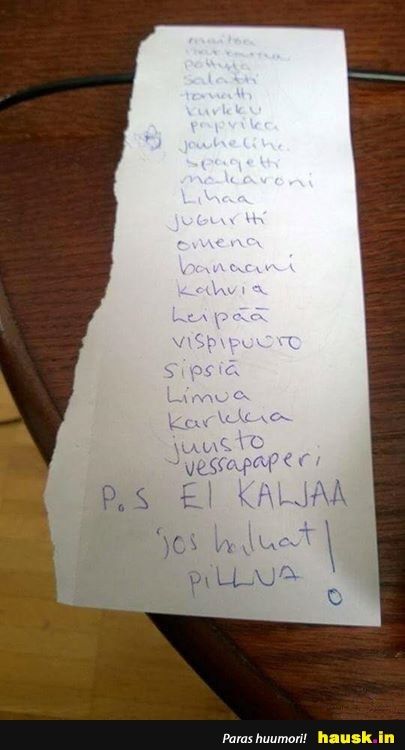 maitoa
makkaraa
pottuja
salatti
tomatti
kurkku
paprika
jauheliha
spagetti
makaroni
Lihaa
jugurtti
omena
banaani
kahvia
Leipää
vispipuuro
sipsiä
Limua
karkkia
juusto
vessapaperi
P.S EI KALJAA
jos haluat
PILLUA !
Paras huumori! hausk.in